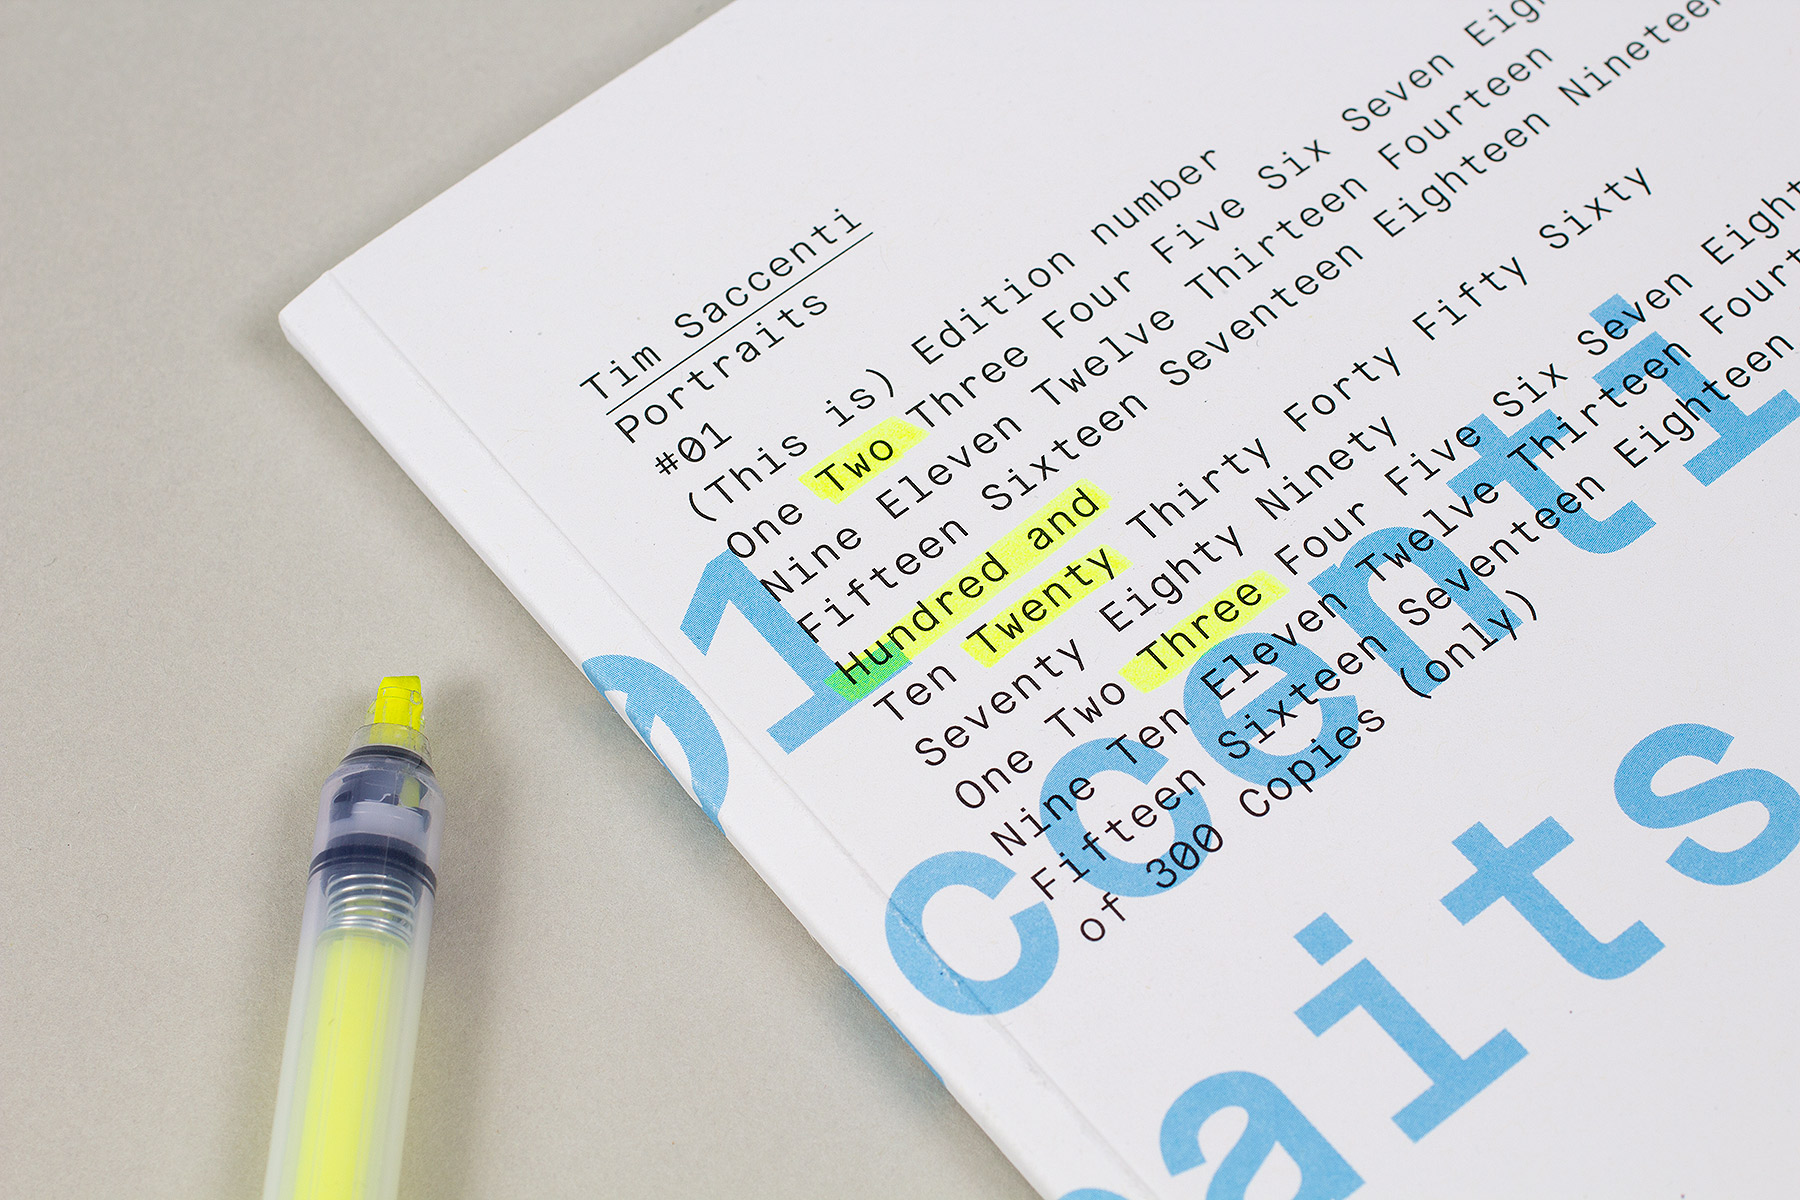 Tim Saccenti
Portraits
#01
(This is) Edition number
One Two Three Four Five Six Seven
Nine Eleven Twelve Thirteen Fourteen
Fifteen Sixteen Seventeen Eighteen Nineteen
Hundred and
Ten Twenty Thirty Forty Fifty Sixty
Seventy Eighty Ninety
One Two Three Four Five Six Seven Eight
Nine Ten Eleven Twelve Thirteen
Fifteen Sixteen Seventeen Eighteen
of 300 Copies (only)
01
centi
aits